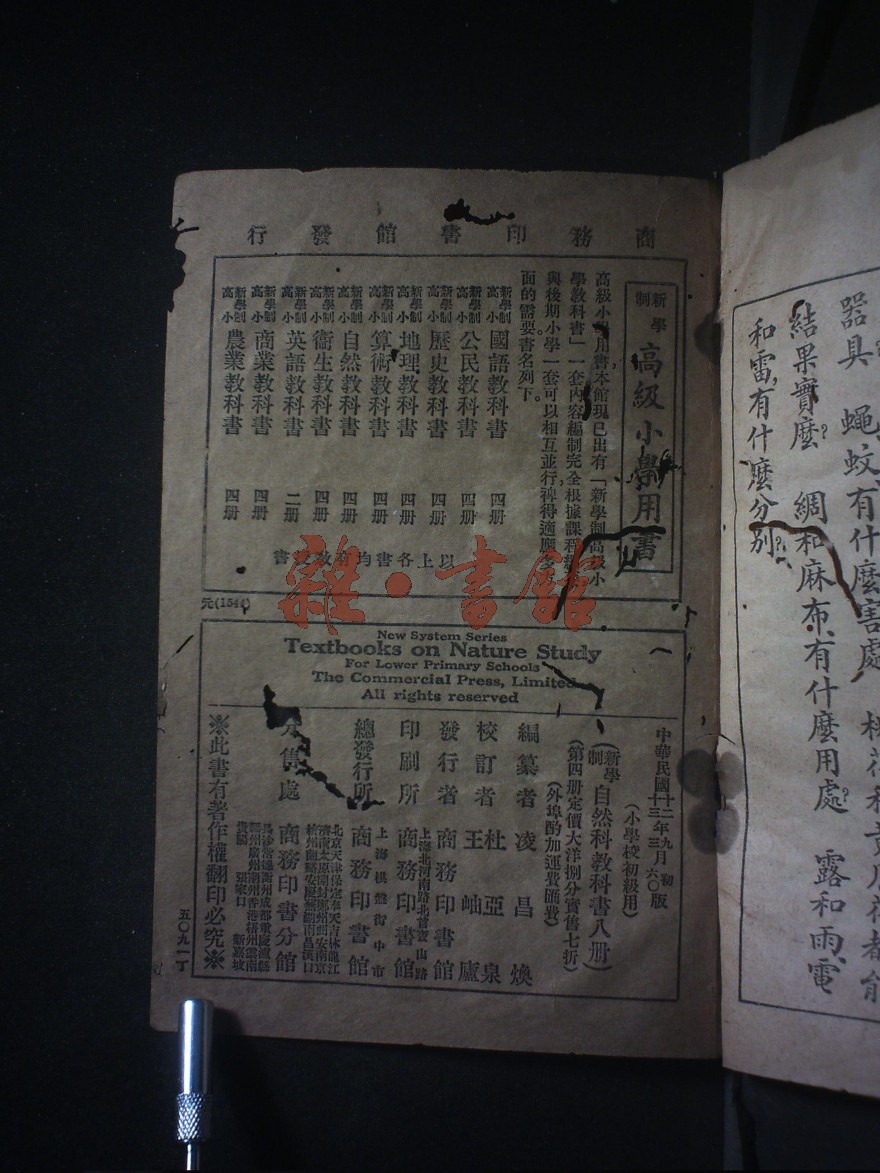 器具 蠅蚊、有什麼害處
結果實麼? 綢和麻布、有什麼用處? 露和雨、電
和雷、有什麼分別?
商務印書館發行
新學制高級小學用書
高級小學用書、本館現已出有「新學制高級小
學教科書」一套、內容編制完全根據課程
與後期小學一套可以相互並行、俾得適應多
面的需要。書名列下。
新學制高小 國語教科書 四册
新學制高小 公民教科書 四册
新學制高小 歷史教科書 四册
新學制高小 地理教科書 四册
新學制高小 算術教科書 四册
新學制高小 自然教科書 四册
新學制高小 衞生教科書 四册
新學制高小 英語教科書 二册
新學制高小 商業教科書 四册
新學制高小 農業教科書 四册
以上各書均有教授書
元(1544)
New System Series
Textbooks on Nature Study
For Lower Primary Schools
The Commercial Press, Limited
All rights reserved
中華民國十二年九月初版
十三年三月六〇版
(小學校初級用)
(新學制自然科教科書八册)
(第四册定價大洋捌分實售七折)
(外埠酌加運費匯費)
編纂者 凌昌煥
校訂者 杜亞泉 王岫廬
發行者 商務印書館
上海北河南路北首寶山路
印刷所 商務印書館
上海棋盤街中市
總發行所 商務印書館
分售處 商務印書分館
北京天津保定奉天吉林龍江
※此書有著作權翻印必究※
五〇九一丁
雜·書館